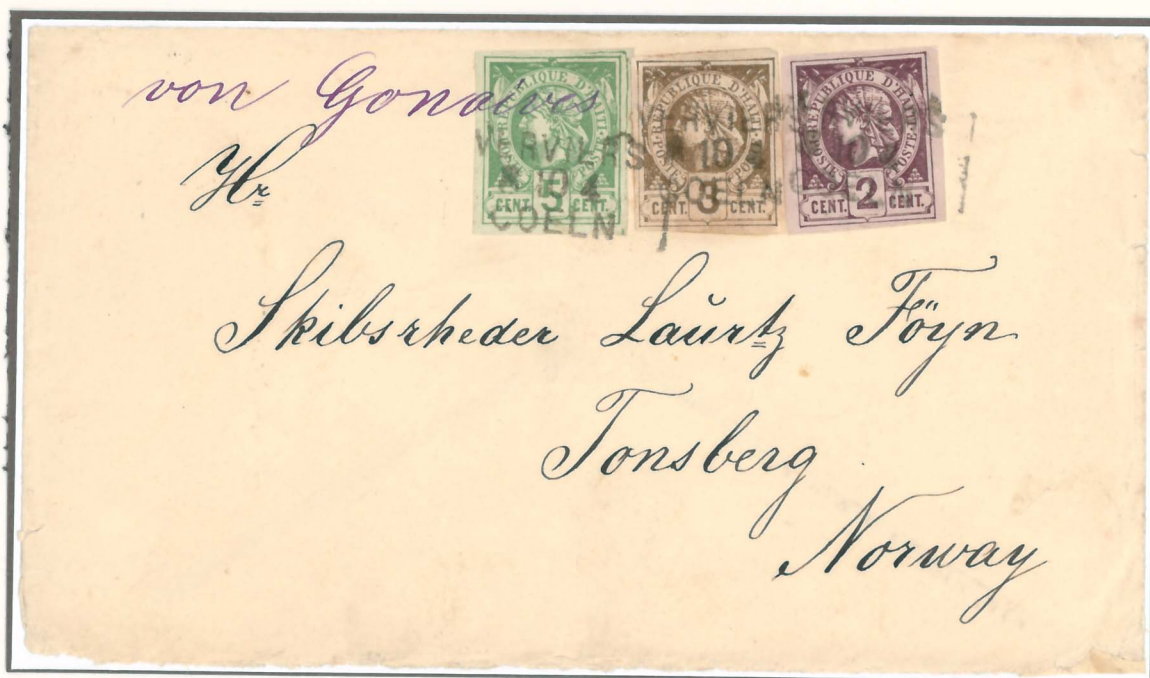 von Gonaives
RÉPUBLIQUE D'HAITI
POSTE POSTE
CENT. 5 CENT.
RÉPUBLIQUE D'HAITI
POSTE POSTE
CENT. 3 CENT.
RÉPUBLIQUE D'HAITI
POSTE POSTE
CENT. 2 CENT.
VERVIERS
10 4
COELN
Hr
Skibsrheder Laŭrtz Föyn
Tonsberg
Norway